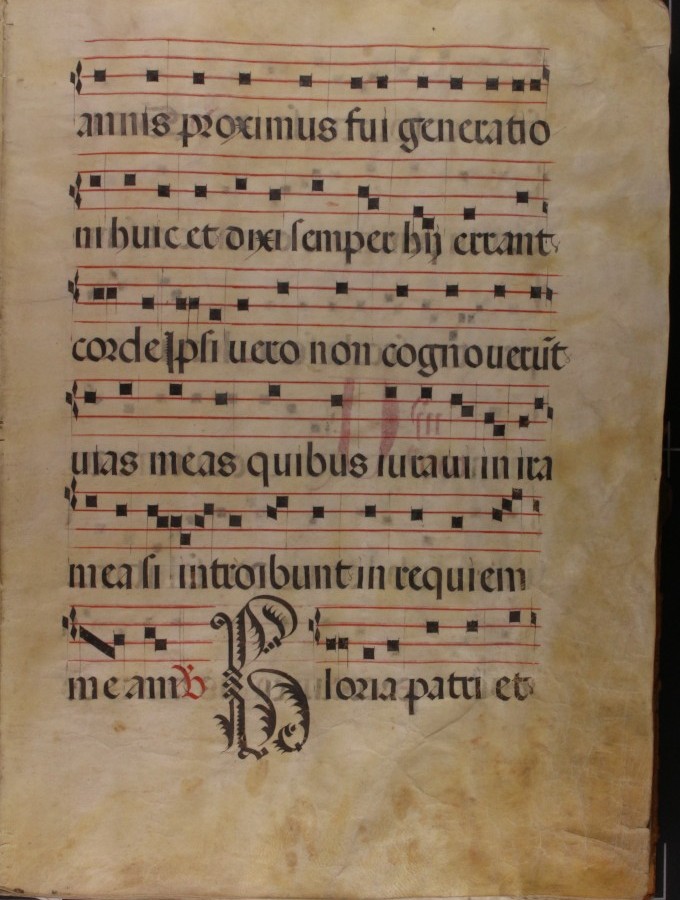 annis proximus fui generatio
ni huic et dixi semper hij errant
corde Ipsi uero non cognouerūt
uias meas quibus iuraui in ira
mea si introibunt in requiem
meam ℟ Gloria patri et